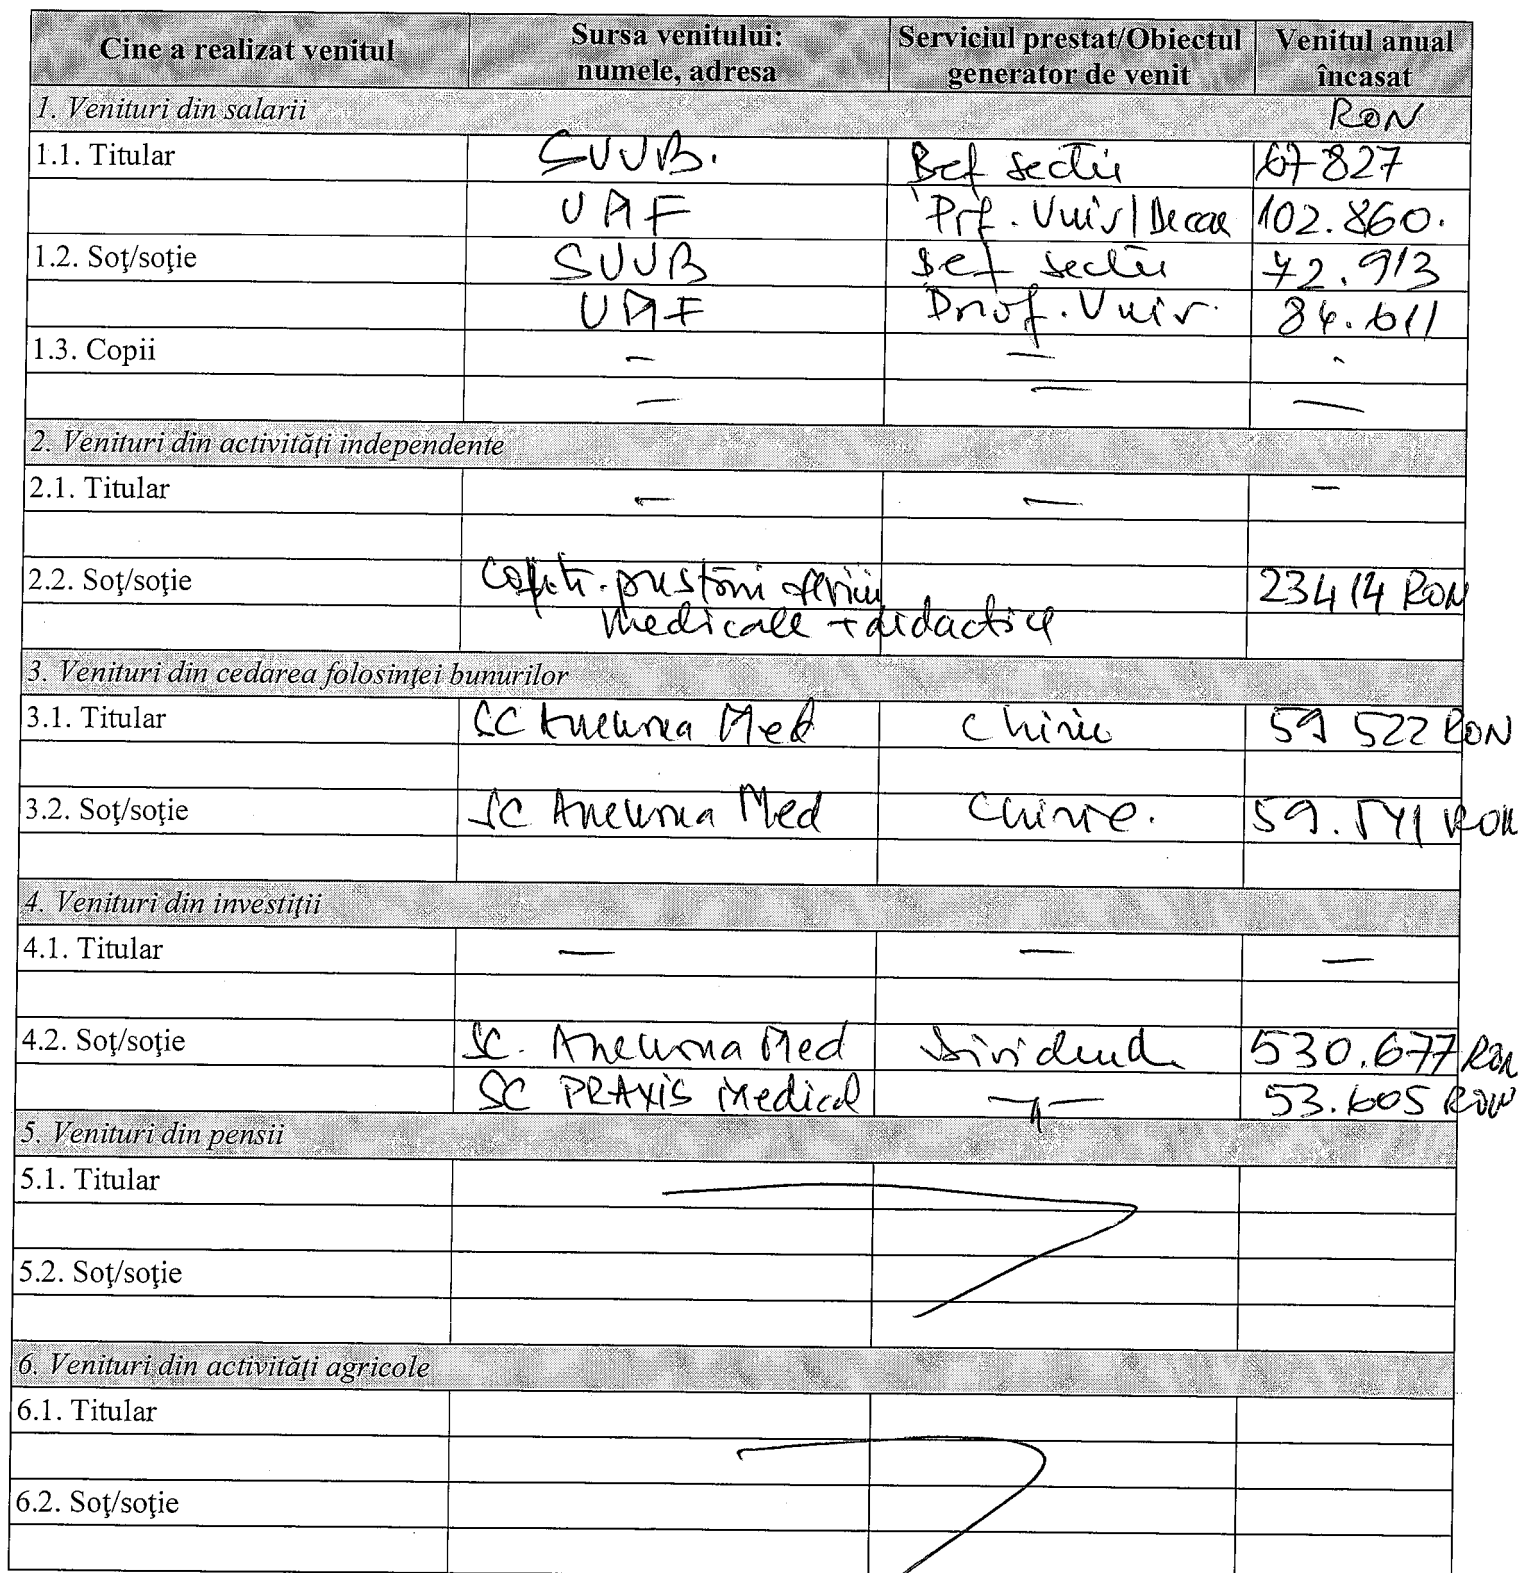 Cine a realizat venitul Sursa venitului: numele, adresa Serviciul prestat/Obiectul generator de venit Venitul anual încasat
1. Venituri din salarii RON
1.1. Titular SUUB. Sef sectie 67827
UMF Prf. Univ/Decan 102.860.
1.2. Soţ/soţie SUUB Sef sectie 72.913
UMF Prof. Univ. 84.611
1.3. Copii – – -
– – –
2. Venituri din activităţi independente
2.1. Titular – – –
2.2. Soţ/soţie prestări servicii 23414 RON
medicale + didactice
3. Venituri din cedarea folosinţei bunurilor
3.1. Titular SC Aneurea Med Chirie 59 522 RON
3.2. Soţ/soţie SC Aneurea Med Chirie. 59.541 RON
4. Venituri din investiţii
4.1. Titular – – –
4.2. Soţ/soţie SC. Med dividend 530.677 RON
SC PRAXIS Medical –"– 53.605 RON
5. Venituri din pensii
5.1. Titular
5.2. Soţ/soţie
6. Venituri din activităţi agricole
6.1. Titular
6.2. Soţ/soţie